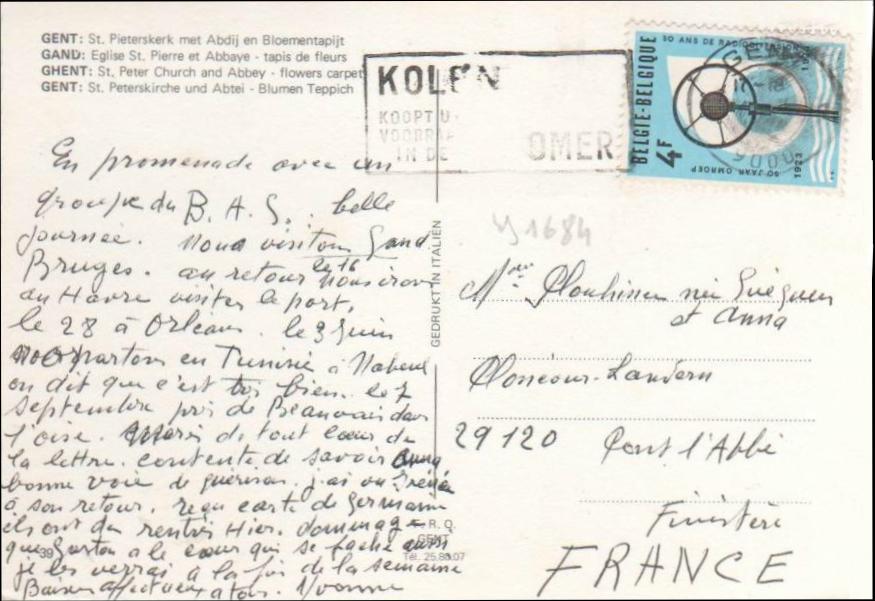 GENT: St. Pieterskerk met Abdij en Bloementapijt
GAND: Eglise St. Pierre et Abbaye - tapis de fleurs
GHENT: St. Peter Church and Abbey - flowers carpet
GENT: St. Peterskirche und Abtei - Blumen Teppich
KOLEN
KOOPT U
VOORRA
IN DE OMER
BELGIE-BELGIQUE
4F
50 ANS DE RADIODIFFUSION
50 JAAR OMROEP
1923
GENT
9000
En promenade avec un
groupe du B.A.S. belle
journée. Nous visitons Gand
Bruges. au retour le 16 nous irons
au Havre visiter le port,
le 28 à Orléans. le 3 Juin
nous partons en Tunisie à Nabeul
on dit que c'est très bien. le 7
septembre près de Beauvais dans
l'oise. Merci de tout cœur de
la lettre. contente de savoir Anna
bonne voie de guérison. j'ai vu Irénée
à son retour. reçu carte de Germaine
ils ont du rentrés Hier. dommage
que Gaston a le cœur qui se fache aussi
je les verrai à la fin de la semaine
Baisers affectueux a tous. Yvonne
GEDRUKT IN ITALIEN
39
R. Q.
GENT
Tél. 25.80.07
y 1684
Mme née
et Anna
Plonéour-Lanvern
29120 Pont l'Abbé
Finistère
FRANCE